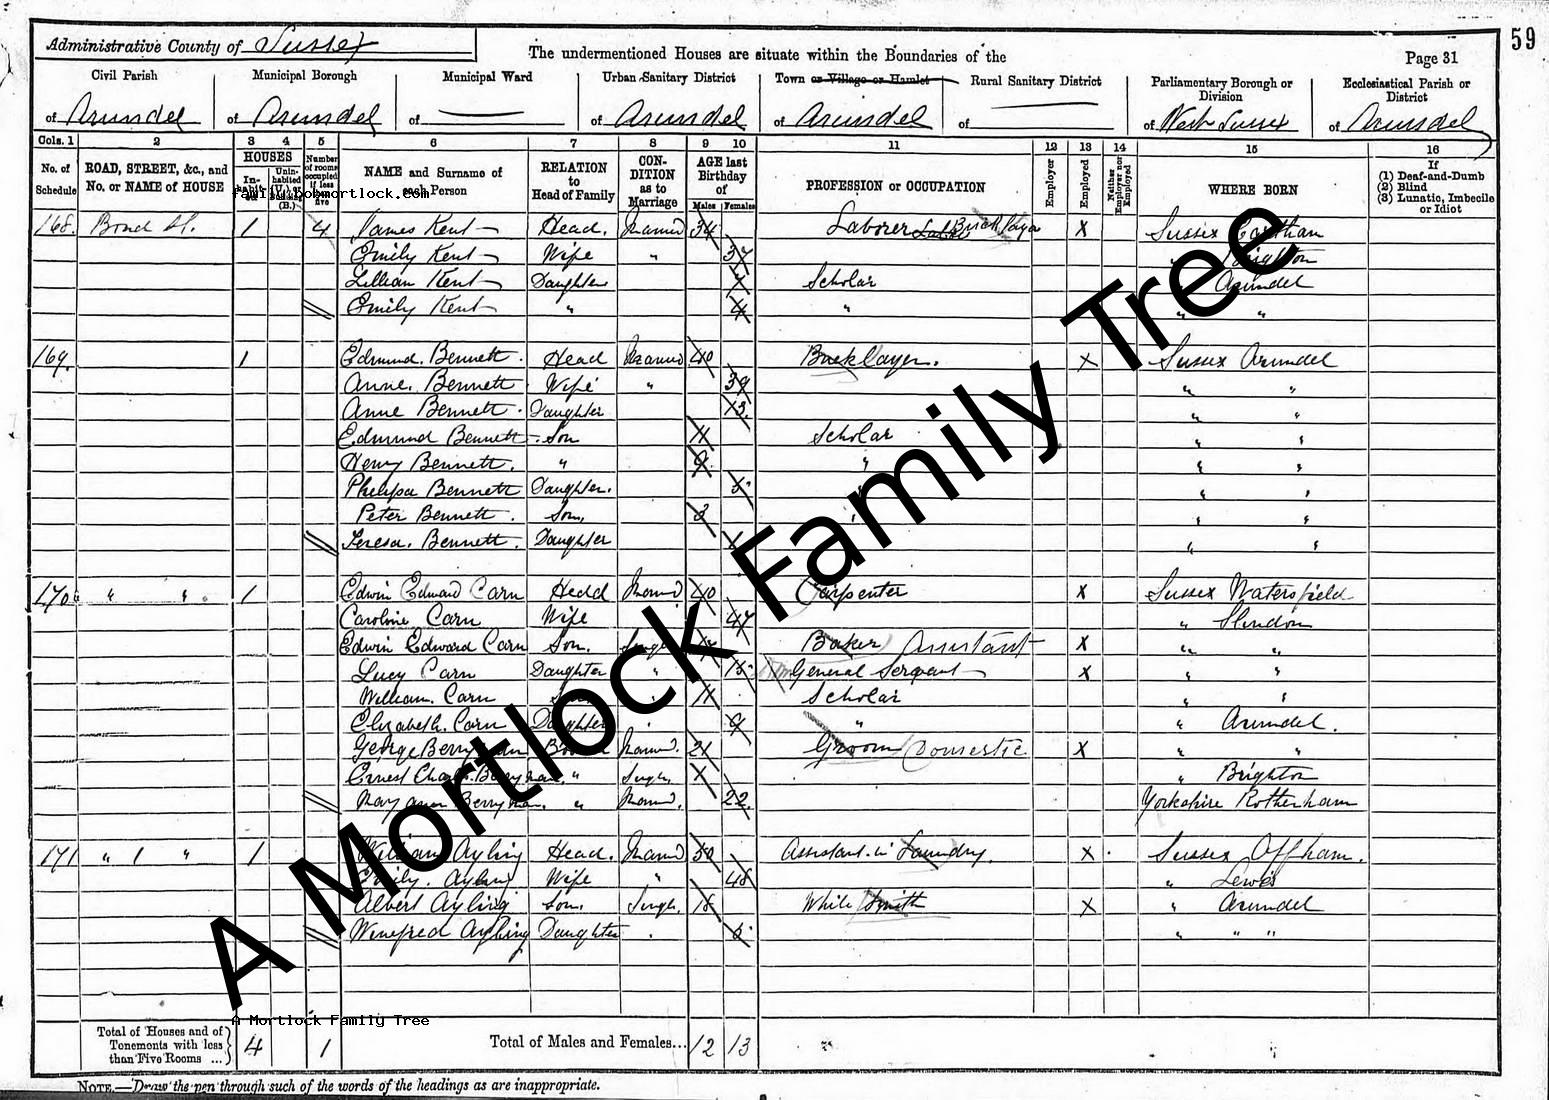 59
Administrative County of Sussex
The undermentioned Houses are situate within the Boundaries of the
Page 31
Civil Parish of Arundel
Municipal Borough of Arundel
Municipal Ward of
Urban Sanitary District of Arundel
Town or Village or Hamlet of Arundel
Rural Sanitary District of
Parliamentary Borough or Division of West Sussex
Ecclesiastical Parish or District of Arundel
Cols. 1 2 3 4 5 6 7 8 9 10 11 12 13 14 15 16
No. of Schedule
ROAD, STREET, &c., and No. or NAME of HOUSE
HOUSES
Inhabited
Uninhabited (U.) or (B.)
Number of rooms occupied if less than five
NAME and Surname of each Person
RELATION to Head of Family
CONDITION as to Marriage
AGE last Birthday of
Males Females
PROFESSION or OCCUPATION
Employer
Employed
Neither Employer nor Employed
WHERE BORN
If
(1) Deaf-and-Dumb
(2) Blind
(3) Lunatic, Imbecile or Idiot
family.bobmortlock.com
168. Bond St. 1 4 James Kent Head. Married 34 Laborer Bricklayer X Sussex Eartham
Emily Kent Wife " 37 " Brighton
Lillian Kent Daughter Scholar " Arundel
Emily Kent " 4 " " "
169. 1 Edmund. Bennett. Head Married 40 Bricklayer. X Sussex Arundel
Anne. Bennett Wife " 39 " "
Anne Bennett. Daughter 13. " "
Edmund Bennett Son 11 Scholar " "
Henry Bennett. " 9 " " "
Philipa Bennett Daughter. 5 " " "
Peter Bennett. Son, 3 " " "
Teresa. Bennett. Daughter 1 " "
170 " " 1 Edwin Edward Carn Head Married 40 Carpenter X Sussex Watersfield
Caroline Carn Wife 47 " Slindon
Edwin Edward Carn Son. Single 17 Baker Assistant X " "
Lucy Carn Daughter " 15 General Servant X " "
William. Carn 11 Scholar " "
Elizabeth. Carn Daughter " 9 " " Arundel.
George Berryman Married. 21 Groom (Domestic X " "
Ernest Charles Berryman. " Single. " Brighton
May Ann Berryman. " Married. 22. Yorkshire Rotherham
171 " " 1 William Ayling Head. Married 50 Assistant in Laundry. X Sussex Offham.
Emily. Ayling Wife " 48 " Lewes
Albert Ayling Son. Single. 18 White Smith X " Arundel
Winefred Ayling Daughter 5 " " "
A Mortlock Family Tree
A Mortlock Family Tree
Total of Houses and of Tenements with less than Five Rooms ... 4 1
Total of Males and Females... 12 13
NOTE.—Draw the pen through such of the words of the headings as are inappropriate.